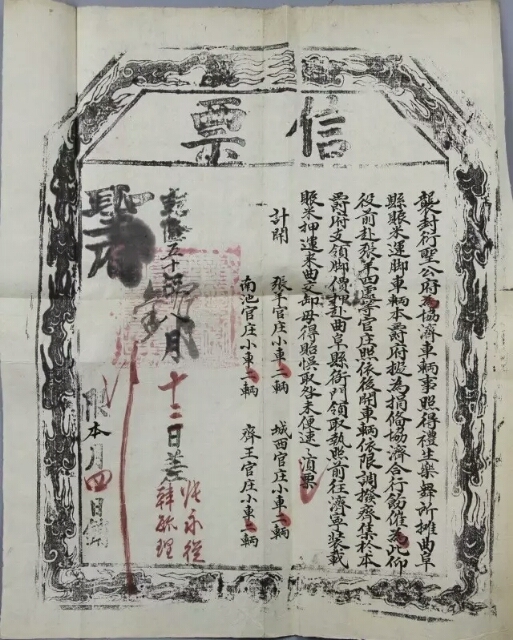 信票
襲封衍聖公府為協濟車輛事照得禮生樂舞所攤曲阜
縣賑米運脚車輛本爵府擬為捐偹協濟合行飭催為此仰
役前赴張羊四等官庄照依後開車輛依限調撥齊集於本
爵府支領脚價押赴曲阜縣衙門領取執照前往濟寧裝載
賑米押運來曲交卸毋得貽悞取咎未便速速須票
計開
張羊官庄小車二輛
城西官庄小車二輛
南池官庄小車二輛
齊王官庄小車二輛
乾隆五十年月
十二日差
張永從
韓振理
限本月四日銷